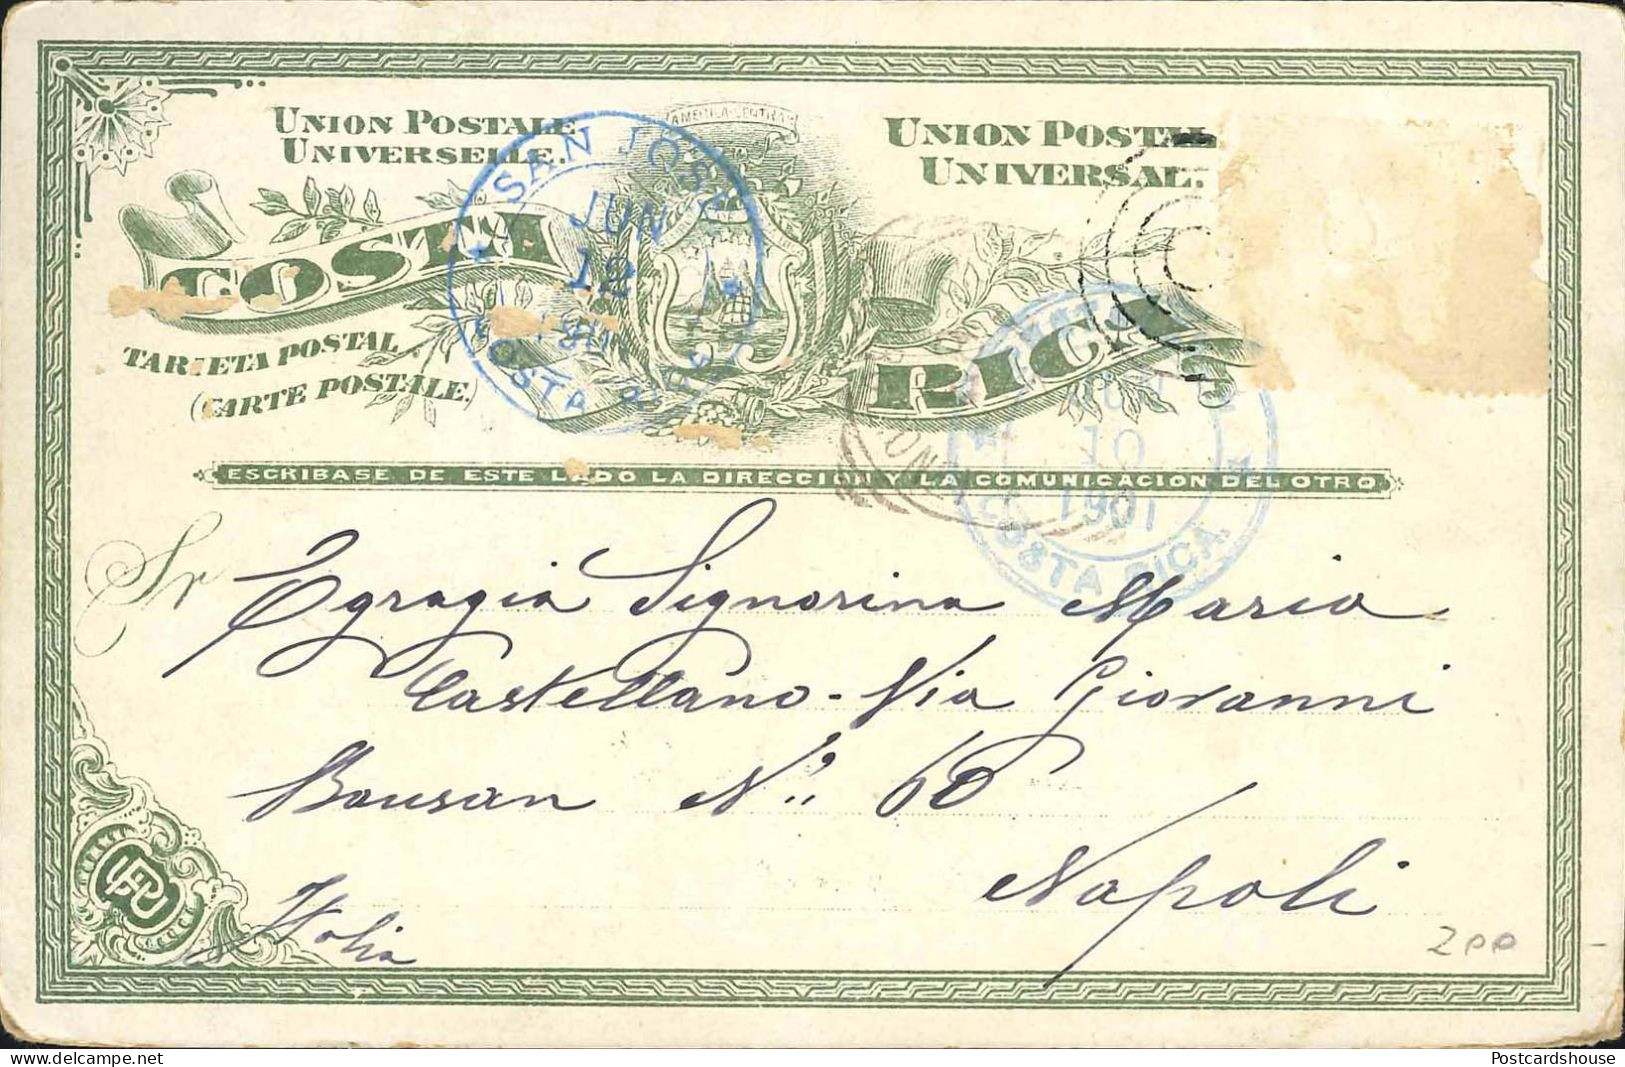 AMERICA CENTRAL
UNION POSTALE
UNIVERSELLE.
UNION POSTAL
UNIVERSAL.
COSTA RICA
TARJETA POSTAL
(CARTE POSTALE.)
SAN JOSE
JUN
12
COSTA RICA
10
1901
COSTA RICA.
ESCRIBASE DE ESTE LADO LA DIRECCION Y LA COMUNICACION DEL OTRO
Sr
Egregia Signorina Maria
Castellano - Via Giovanni
Bausan N° 60
Napoli
Italia
UPU
200
Postcardshouse